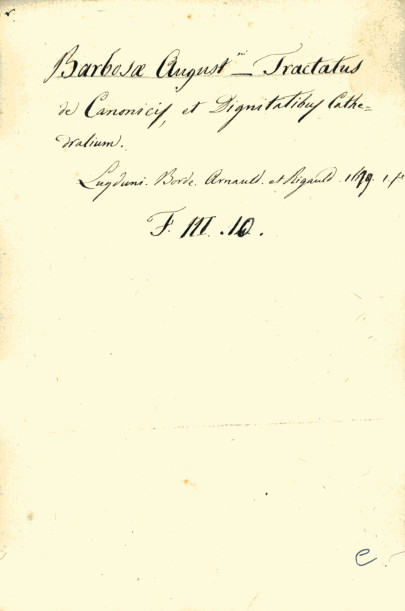 Barbosæ August.ni — Tractatus
de Canonicis, et Dignitatibus Cathe=
dralium.
Lugduni. Borde. Arnauld. et Rigauld. 1. f.
F. III. 10.
e